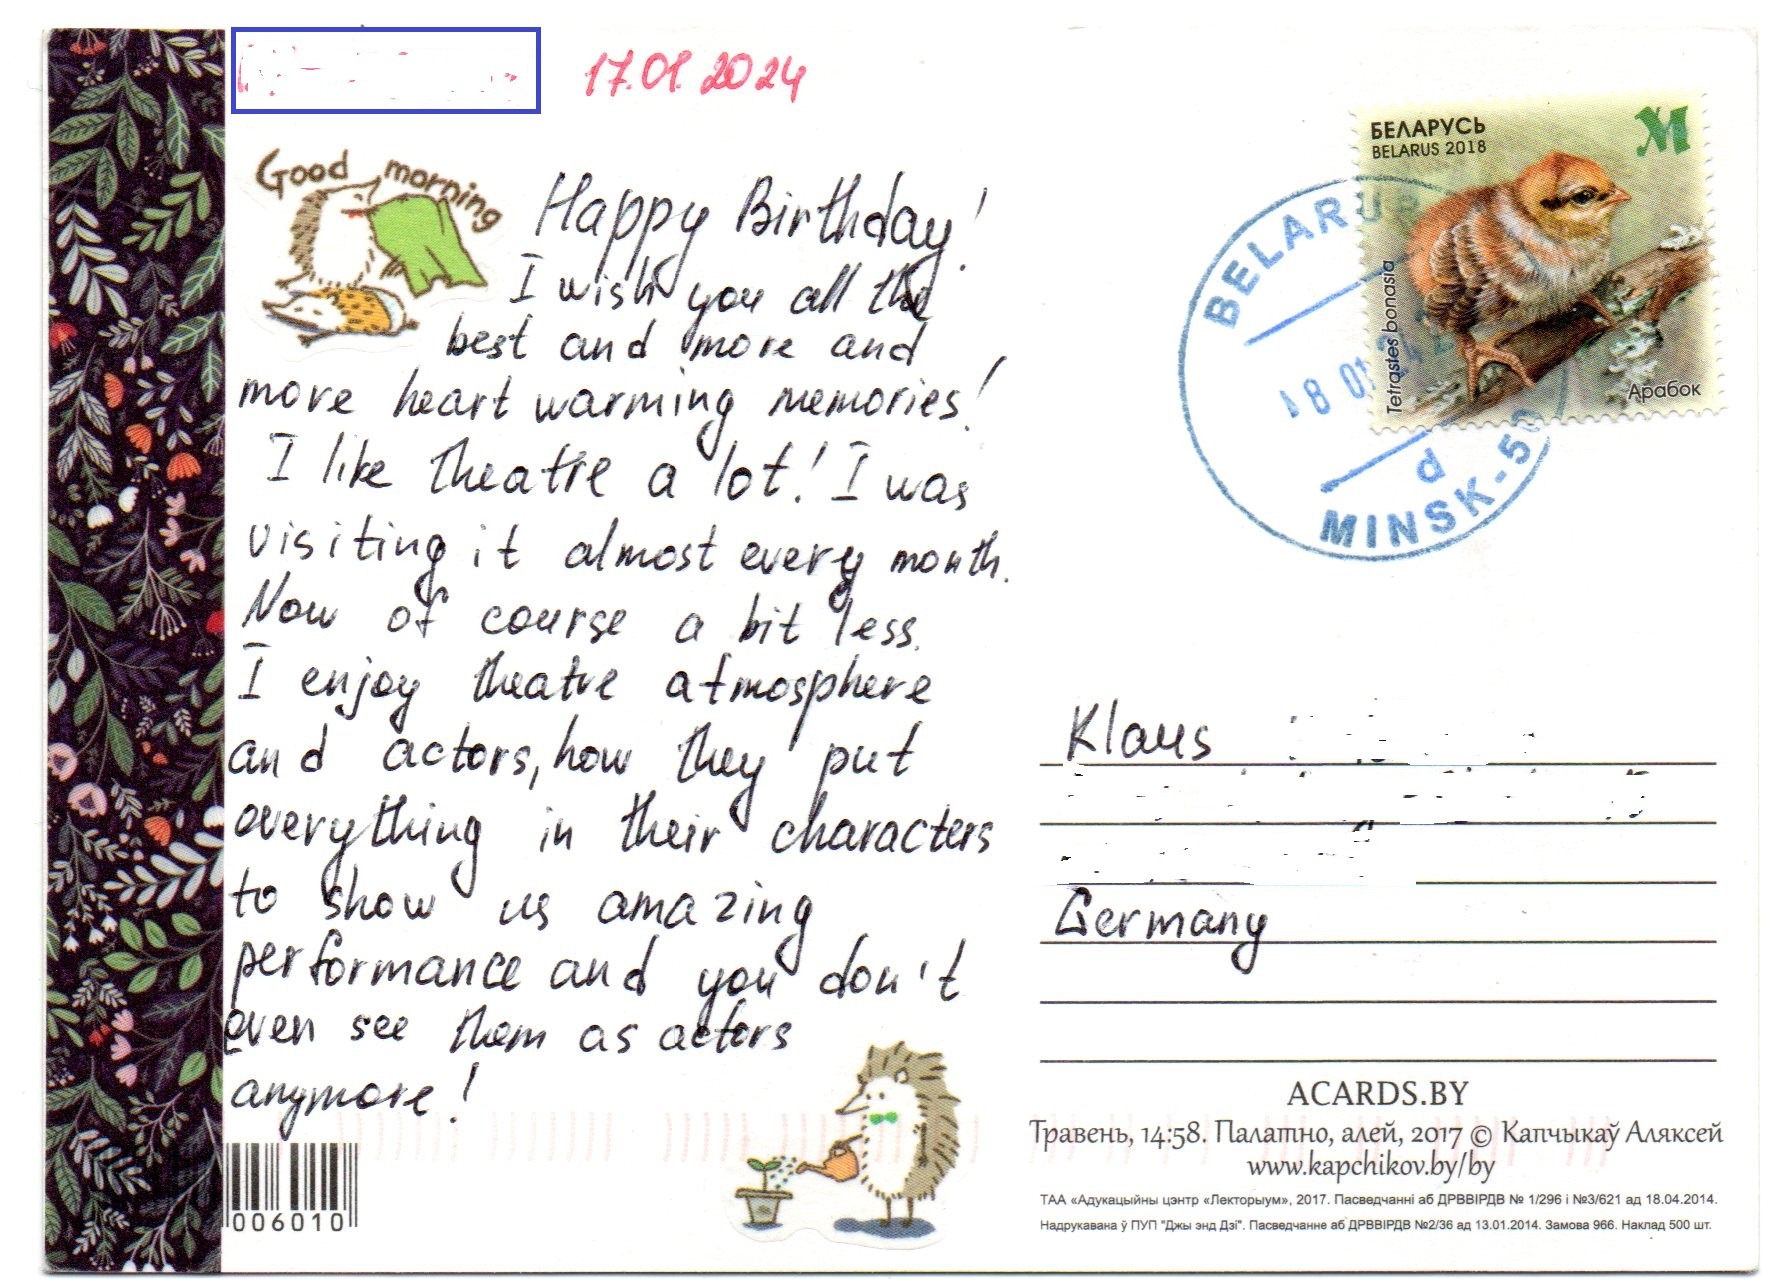 17.01.2024
Good morning
Happy Birthday!
I wish you all the
best and more and
more heart warming memories!
I like theatre a lot! I was
visiting it almost every month.
Now of course a bit less.
I enjoy theatre atmosphere
and actors, how they put
everything in their characters
to show us amazing
performance and you don't
even see them as actors
anymore!
006010
БЕЛАРУСЬ
BELARUS 2018
M
Tetrastes bonasia
Арабок
BELARUS
18 01 24
d
MINSK-50
Klaus
Germany
ACARDS.BY
Травень, 14:58. Палатно, алей, 2017 © Капчыкаў Аляксей
www.kapchikov.by/by
ТАА «Адукацыйны цэнтр «Лекторыум», 2017. Пасведчанні аб ДРВВІРДВ № 1/296 і №3/621 ад 18.04.2014.
Надрукавана ў ПУП "Джы энд Дзі". Пасведчанне аб ДРВВІРДВ №2/36 ад 13.01.2014. Замова 966. Наклад 500 шт.